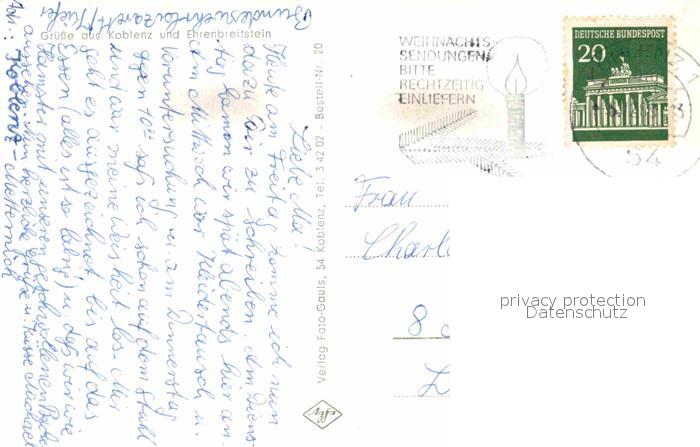 Grüße aus Koblenz und Ehrenbreitstein
Liebe Ma!
Heute am Freitag komme ich nun
dazu Dir zu schreiben. Am Diens-
tag kamen wir spät abends hier an.
Am Mittwoch war Kleidertausch u.
Voruntersuchung u. am Donnerstag
gegen 10°° saß ich schon auf dem Stuhl
und war meine Weisheit los. Mir
geht es ausgezeichnet bis auf das
Essen (alles ist so labrig) u. daß wir wie
Hamster mit unseren geschwollenen Backen
herzliche Grüße u. Küsse Michael
Bundeswehrlazarett
Koblenz-Metternich
Verlag Foto-Gauls, 54 Koblenz, Tel. 3 42 02 - Bestell-Nr. 20
effy
WEIHNACHTS-
SENDUNGEN
BITTE
RECHTZEITIG
EINLIEFERN
DEUTSCHE BUNDESPOST
20
54
Frau
Charl
8
privacy protection
Datenschutz